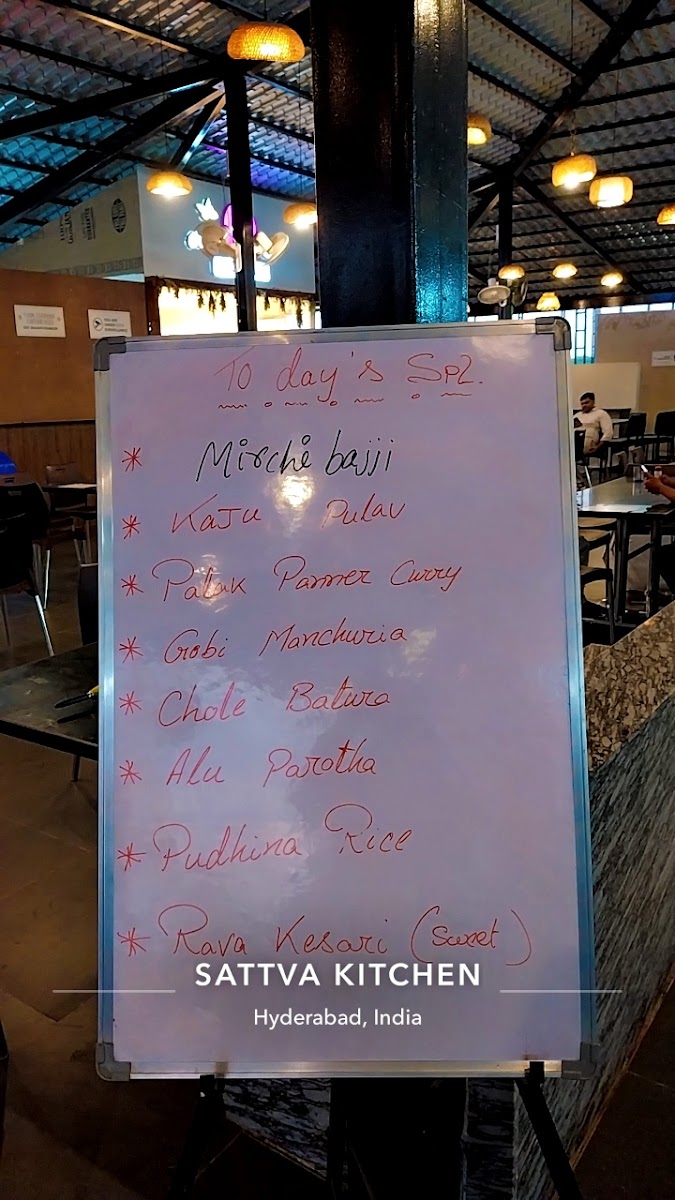 To day's Spl.
* Mirchi bajji
* Kaju Pulav
* Palak Panner Curry
* Gobi Manchuria
* Chole Batura
* Alu Parotha
* Pudhina Rice
* Rava Kesari (Sweet)
SATTVA KITCHEN
Hyderabad, India